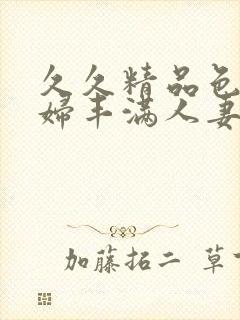 久久精品色
婦丰满人妻
加藤拓二 草